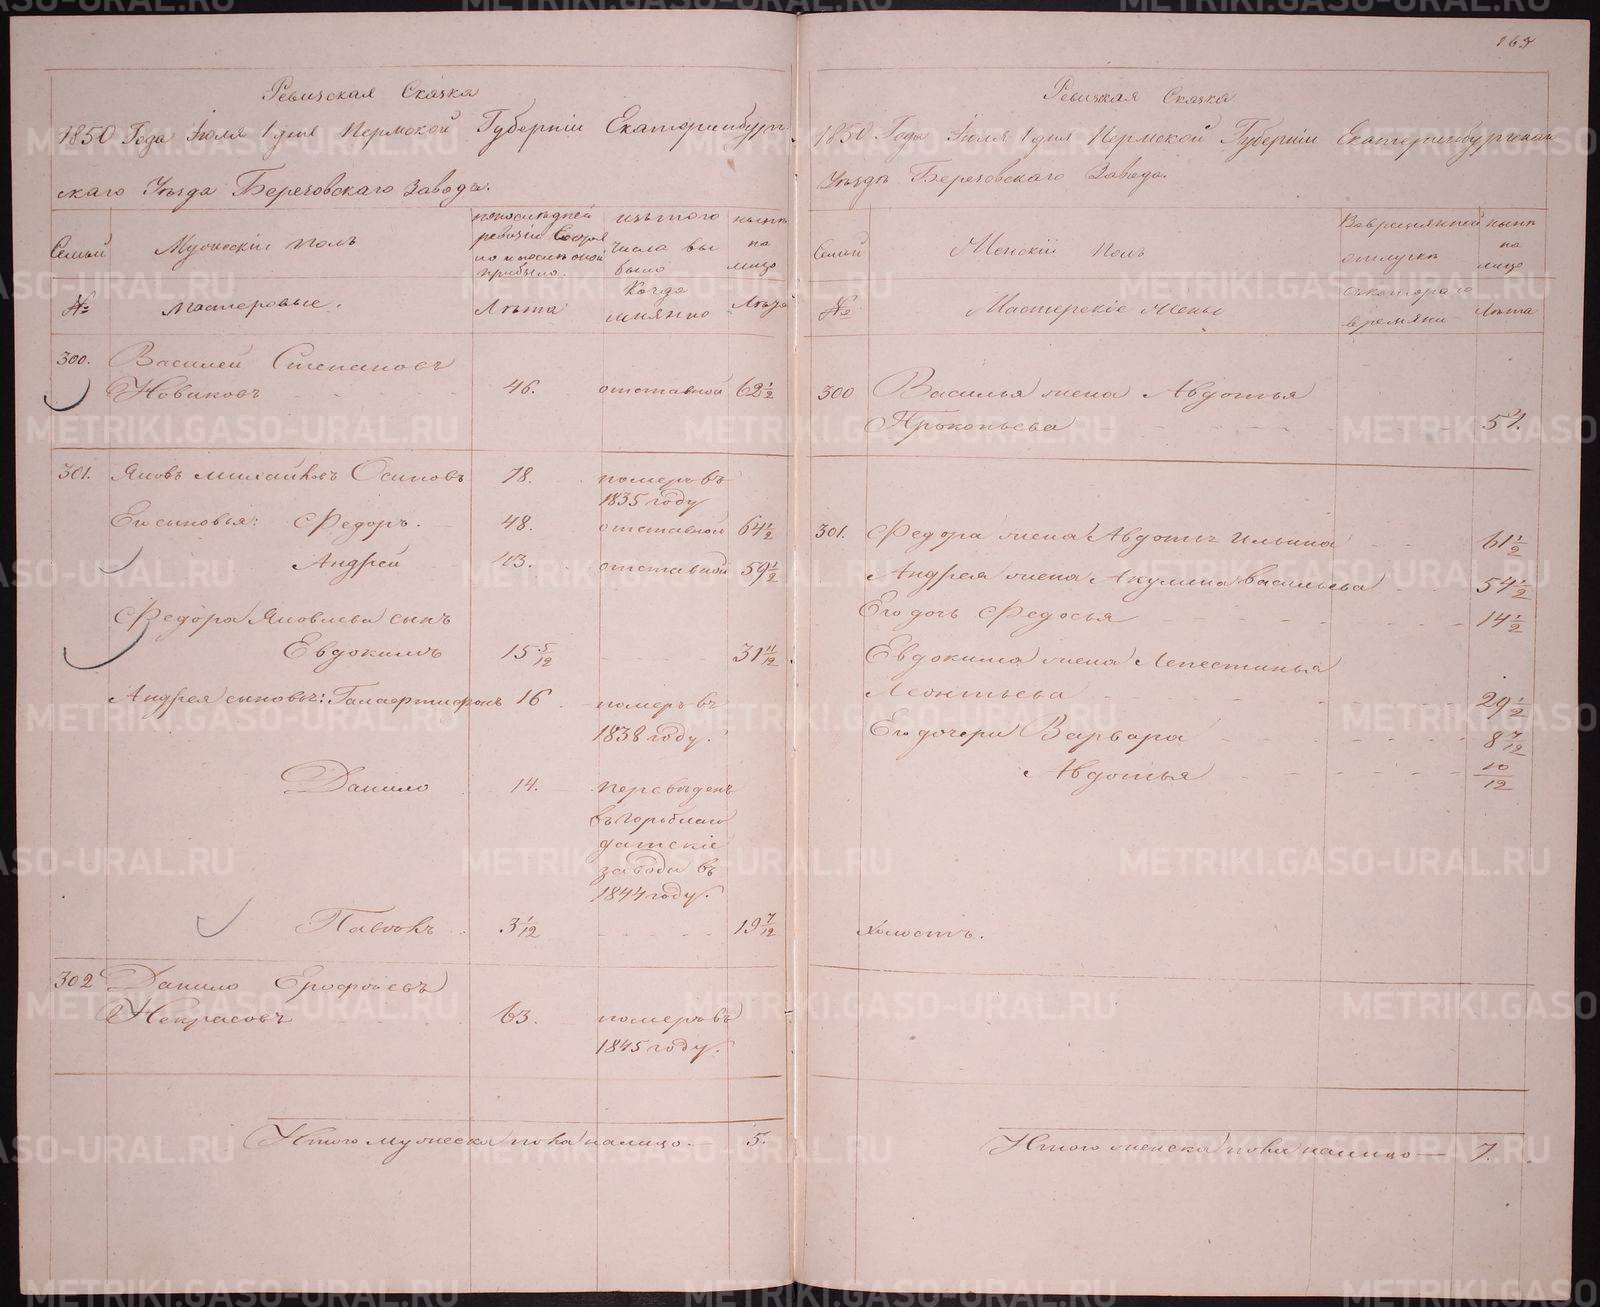 165
Ревизская Сказка
1850 Года Іюля 1 дня Пермской Губерніи Екатеринбург-
скаго Уѣзда Березовскаго Завода.
Семьи
№
Мужескій полъ
Мастеровые.
по последней
ревизіи состоя
ло и после оной
прибыло.
Лѣта
изъ того
числа вы
было
Когда
имянно
ныне
на
лицо
Лѣта
300. Василей Степановъ
Новиковъ 46. отставной 62 1/2
301. Яковъ Михайловъ Осиповъ 78. померъ въ
1835 году
Его сыновья: Федоръ. 48. отставной 64 1/2
Андрей 43. отставной 59 1/2
Федора Яковлева сынъ
Евдокимъ 15 5/12 31 11/12
Андрея сыновья: 16 померъ въ
1838 году.
Данило 14. переведенъ
въ Гороблаго
датскіе
заводы въ
1844 году.
3 1/12 19 7/12
302 Данило Ерофѣевъ
Некрасовъ 63. померъ въ
1845 году.
Итого мужеска пола налицо 5.
Ревизская Сказка
1850 Года Іюля 1 дня Пермской Губерніи Екатеринбургскаго
Уѣзда Березовскаго Завода.
Семьи
№
Женскій Полъ
Мастерскіе жены
Во временной
отлучке
съ котораго
времяни
ныне
на
лицо
Лѣта
300 Василья жена Авдотья
Прокопьева 51.
301. Федора жена Авдотья Ильина 61 1/2
Андрея жена Акулина Васильева 54 1/2
Его дочь Федосья 14 1/2
Евдокима жена
Леонтьева 29 1/2
Его дочери Варвара 8 7/12
Авдотья 10/12
Холостъ.
Итого женска пола налицо — 7.
METRIKI.GASO-URAL.RU